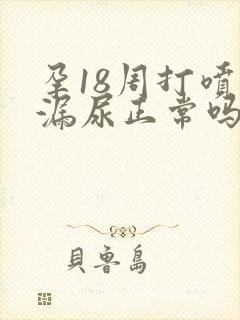 孕18周打喷
漏尿正常吗
貝魯島